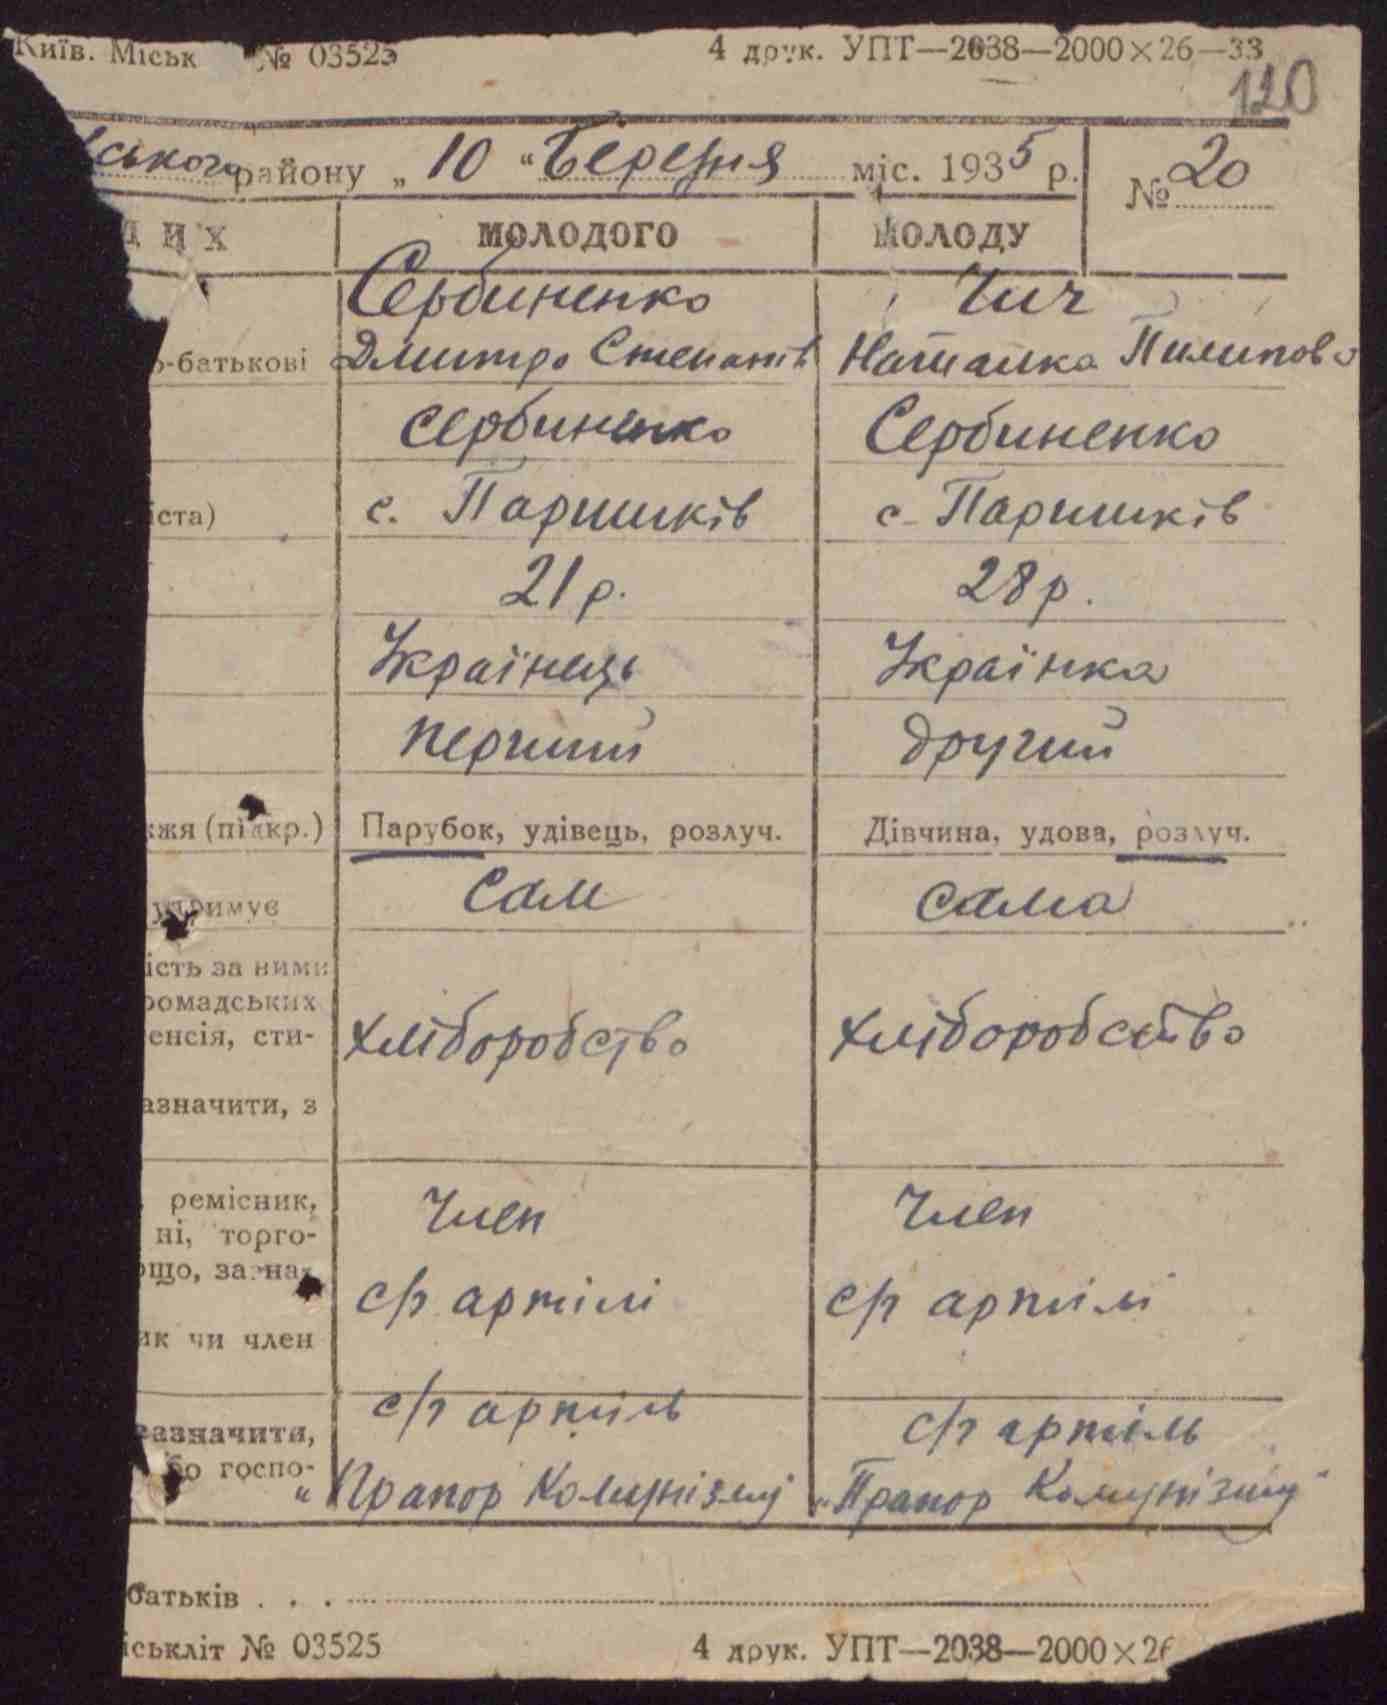 Київ. Міськ № 03525 4 друк. УПТ—2038—2000×26—33
120
ського району „ 10 “ Березня міс. 1935 р. № 20
ДИХ МОЛОДОГО МОЛОДУ
Сербиненко Чич
о-батькові Дмитро Степанів Наталка Пилипова
Сербиненко Сербиненко
іста) с. Паришків с. Паришків
21 р. 28 р.
Українець Українка
перший другий
жжя (підкр.) Парубок, удівець, розлуч. Дівчина, удова, розлуч.
утримує сам сама
ість за ними
ромадських
енсія, сти- хліборобство хліборобство
азначити, з
ремісник, Член Член
ні, торго-
ощо, зазна- с/г артілі с/г артілі
ик чи член
с/г артіль с/г артіль
зазначити,
бо госпо- „Прапор Комунізму „Прапор Комунізму“
батьків . . .
іськліт № 03525 4 друк. УПТ—2038—2000×26